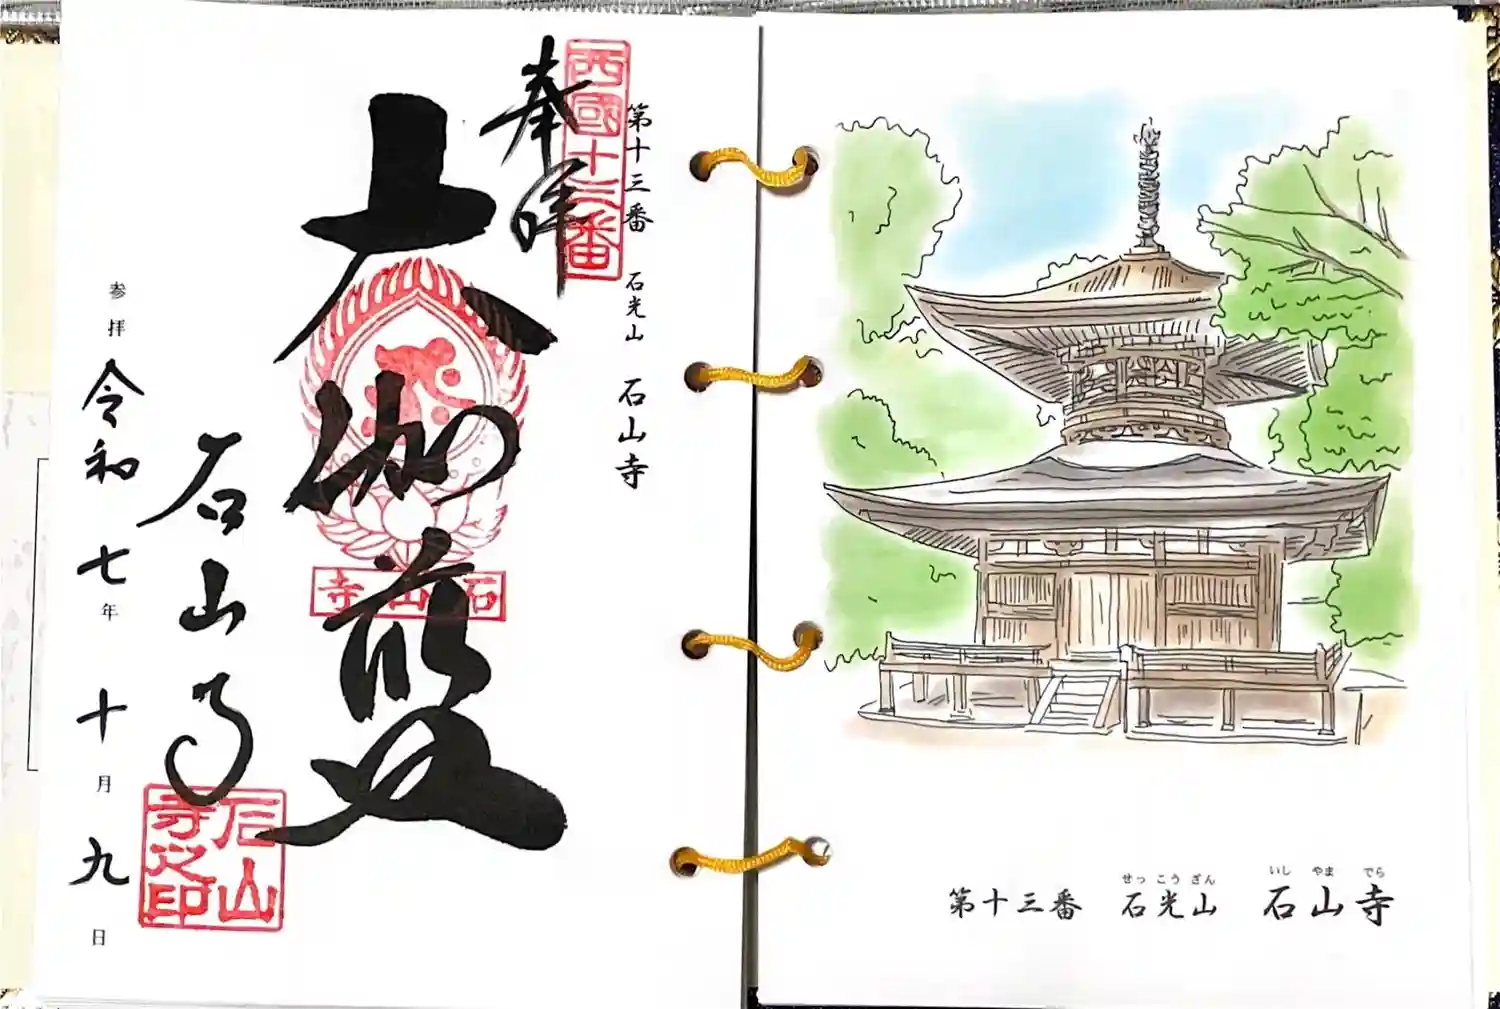 奉拝
西國十三番
第十三番 石光山 石山寺
大伽藍
石山寺
石山寺
石山寺之印
参拝 令和七年十月九日
せっこうざん いしやまでら
第十三番 石光山 石山寺